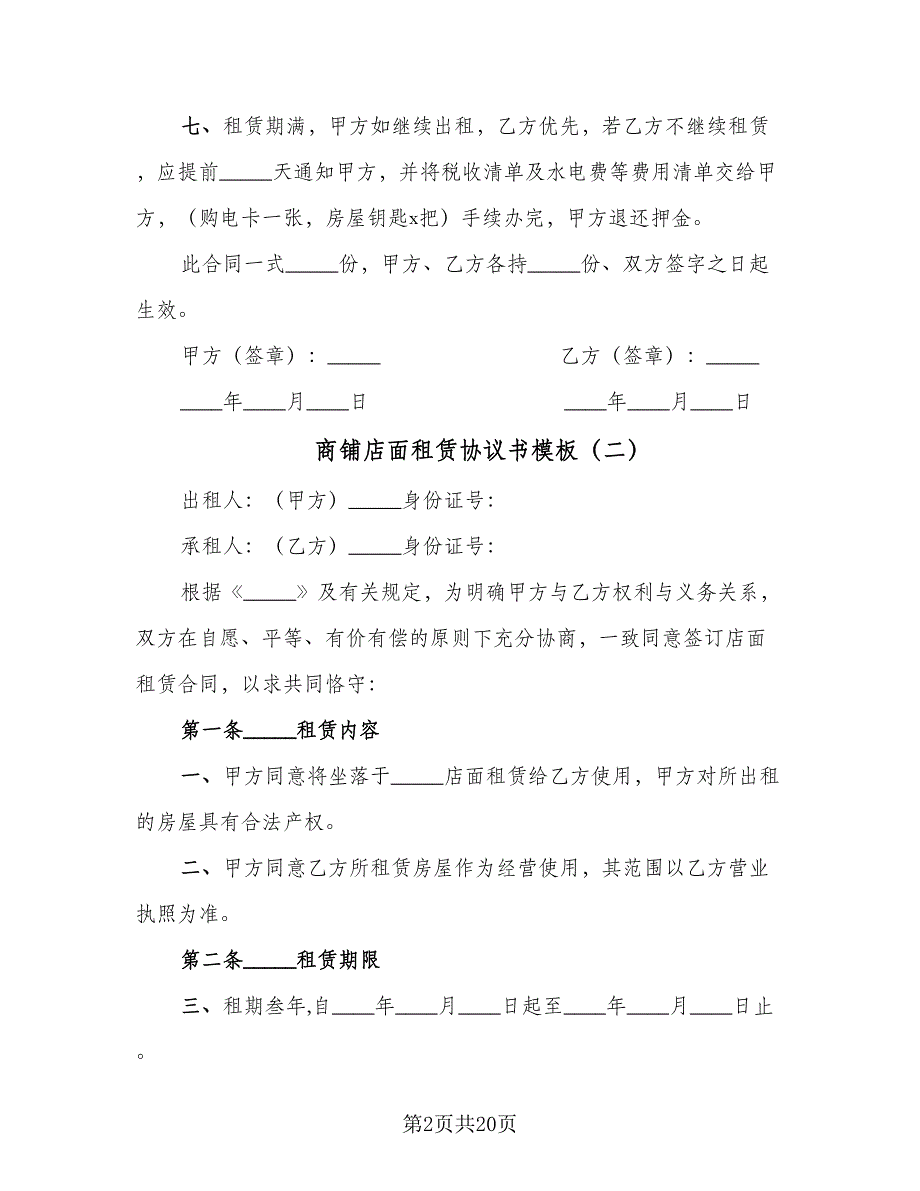 七、租赁期满，甲方如继续出租，乙方优先，若乙方不继续租赁
，应提前_____天通知甲方，并将税收清单及水电费等费用清单交给甲
方，（购电卡一张，房屋钥匙x把）手续办完，甲方退还押金。
此合同一式_____份，甲方、乙方各持_____份、双方签字之日起
生效。
甲方（签章）：_____ 乙方（签章）：_____
____年____月____日 ____年____月____日
商铺店面租赁协议书模板（二）
出租人：（甲方）_____身份证号：
承租人：（乙方）_____身份证号：
根据《_____》及有关规定，为明确甲方与乙方权利与义务关系，
双方在自愿、平等、有价有偿的原则下充分协商，一致同意签订店面
租赁合同，以求共同恪守：
第一条_____租赁内容
一、甲方同意将坐落于_____店面租赁给乙方使用，甲方对所出租
的房屋具有合法产权。
二、甲方同意乙方所租赁房屋作为经营使用，其范围以乙方营业
执照为准。
第二条_____租赁期限
三、租期叁年,自____年____月____日起至____年____月____日止
。
第2页共20页